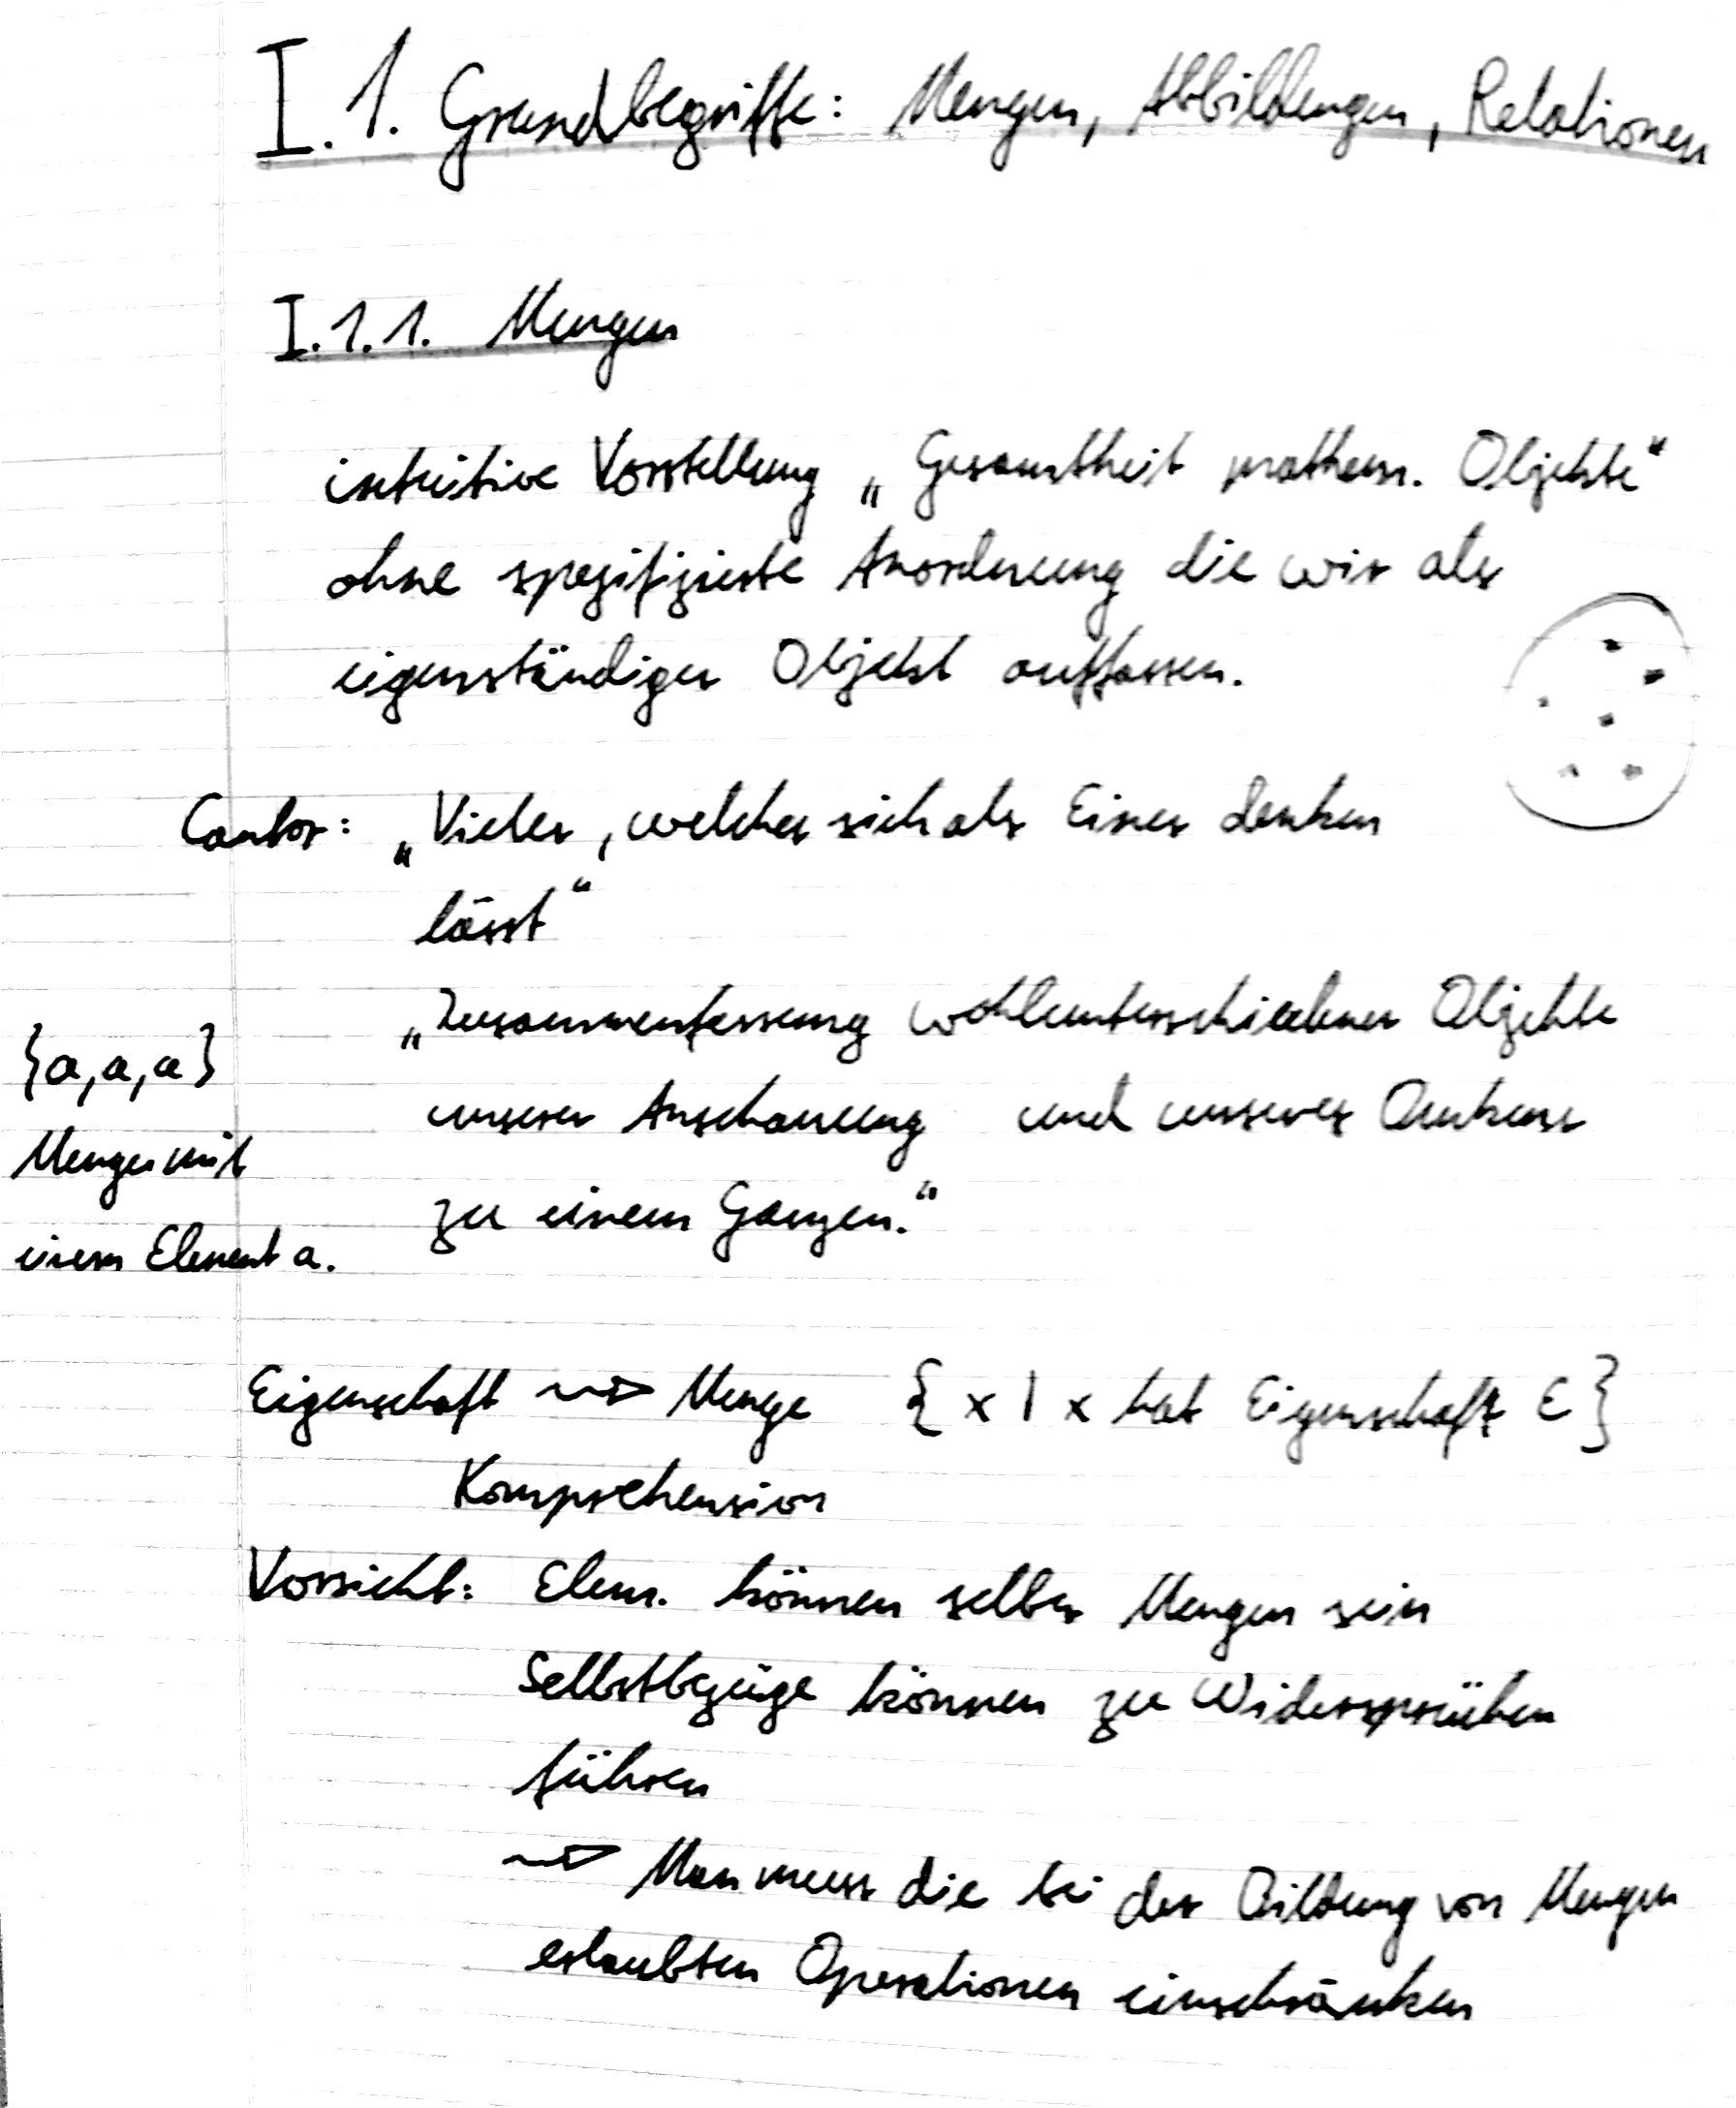 I.1. Grundbegriffe: Mengen, Abbildungen, Relationen
I.1.1. Mengen
intuitive Vorstellung „Gesamtheit mathem. Objekte“
ohne spezifizierte Anordnung die wir als
eigenständiges Objekt auffassen.
Cantor: „Vieles, welches sich als Eines denken
lässt“
„Zusammenfassung wohlunterschiedener Objekte
unserer Anschauung und unseres Denkens
zu einem Ganzen.“
{a,a,a}
Menge mit
einem Element a.
Eigenschaft ⇝ Menge { x | x hat Eigenschaft E }
Komprehension
Vorsicht: Elem. können selber Mengen sein
Selbstbezüge können zu Widersprüchen
führen
⇝ Man muss die bei der Bildung von Mengen
erlaubten Operationen einschränken